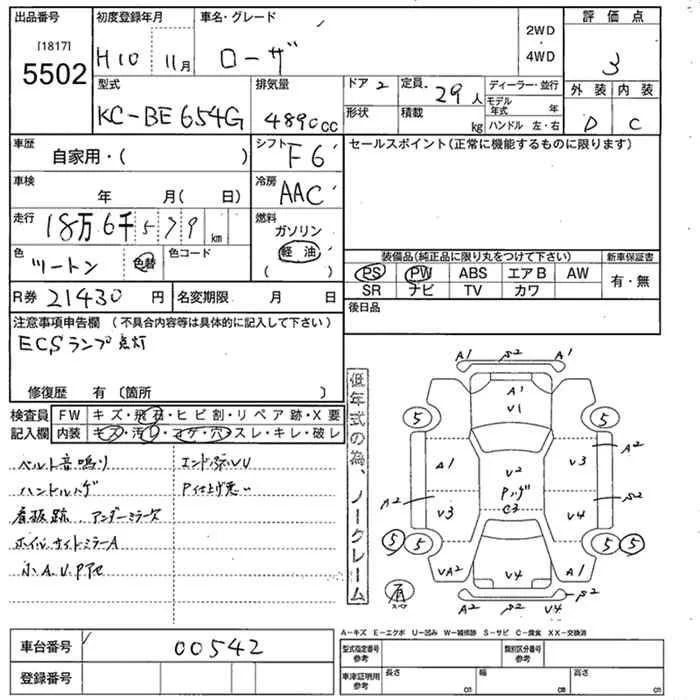 出品番号
[1817]
5502
初度登録年月
H10 11月
車名・グレード
ローザ
2WD
・
4WD
評価点
3
型式
KC-BE654G
排気量
4890cc
ドア 2
形状
定員 29人
積載 kg
ディーラー・並行
モデル年式 年
ハンドル 左・右
外装 内装
D C
車歴
自家用・( )
シフト F6
セールスポイント(正常に機能するものに限ります)
車検
年 月( 日)
冷房 AAC
走行 18万6千579km
燃料
ガソリン
軽油
( )
色 ツートン 色替 色コード
装備品(純正品に限り丸をつけて下さい) 新車保証書
PS PW ABS エアB AW
SR ナビ TV カワ
有・無
R券 21430円 名変期限 月 日
後日品
注意事項申告欄 (不具合内容等は具体的に記入して下さい)
ECSランプ点灯
修復歴 有 (箇所 )
検査員 FW キズ・飛石・ヒビ割・リペア跡・X要
記入欄 内装 キズ・汚レ・コゲ・穴・スレ・キレ・破レ
ベルト音鳴り
ハンドルハゲ
看板跡、アンダーミラーキズ
ホイルサイドミラーA
小A.U.P
P仕上げ悪い
低年式の為、ノークレーム
A1 S2 A1
A1
V1
5 5
A1 V2 V3 A2
Pハゲ
C3
A2 V3 V4 S2
5 5 5 5
VA2 V4 A1
S2 V4 S2
有
スペア
A-キズ E-エクボ U-凹み W-補修跡 S-サビ C-腐食 XX-交換済
車台番号 00542
登録番号
型式指定番号
参考
類別区分番号
参考
車庫証明用
参考
長さ cm 幅 cm 高さ cm